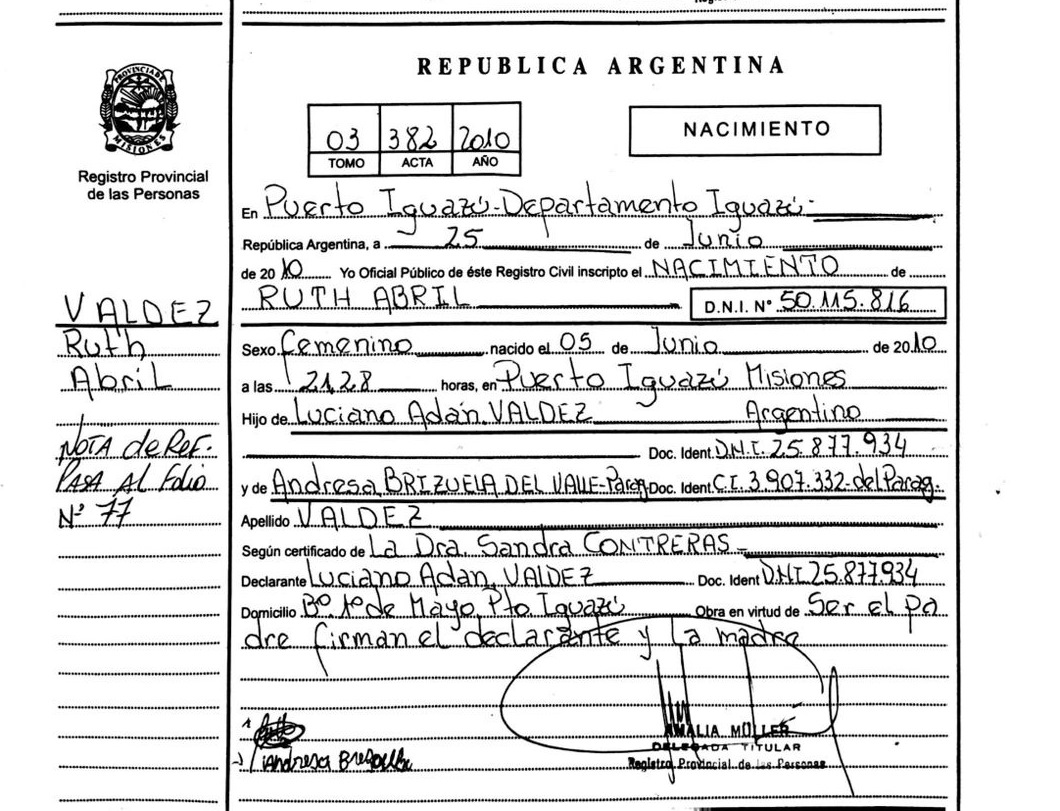 PROVINCIA DE
MISIONES
Registro Provincial
de las Personas
REPUBLICA ARGENTINA
03 382 2010
TOMO ACTA AÑO
NACIMIENTO
En Puerto Iguazú-Departamento Iguazú-
República Argentina, a 25 de Junio
de 2010 Yo Oficial Público de éste Registro Civil inscripto el NACIMIENTO de
RUTH ABRIL D.N.I. N° 50.115.816
Sexo Femenino nacido el 05 de Junio de 2010
a las 21,28 horas, en Puerto Iguazú Misiones
Hijo de Luciano Adán VALDEZ Argentino
Doc. Ident. D.N.I. 25.877.934
y de Andresa BRIZUELA DEL VALLE-Parag- Doc. Ident. C.I. 3.907.332-del Parag.
Apellido VALDEZ
Según certificado de La Dra. Sandra CONTRERAS-
Declarante Luciano Adan VALDEZ Doc. Ident D.N.I. 25.877.934
Domicilio B° 1° de Mayo Pto Iguazú Obra en virtud de Ser el pa
dre firman el declarante y la madre
VALDEZ
Ruth
Abril
NOTA de REF.
PASA AL Folio
N° 77
Andresa
AMALIA MÜLLER
DELEGADA TITULAR
Registro Provincial de las Personas